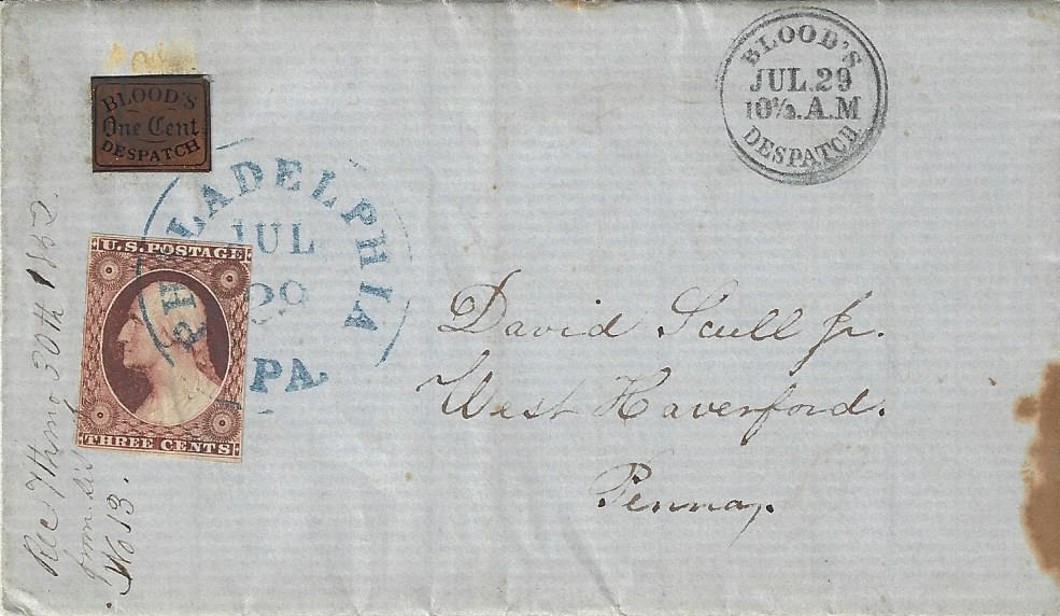 BLOOD'S
One Cent
DESPATCH
BLOOD'S
JUL. 29
10½. A.M
DESPATCH
PHILADELPHIA
JUL
29
PA.
U.S. POSTAGE
THREE CENTS
David Scull Jr.
West Haverford.
Penna,.
Rec 7th mo 30th 1852.
from sis
No 13.